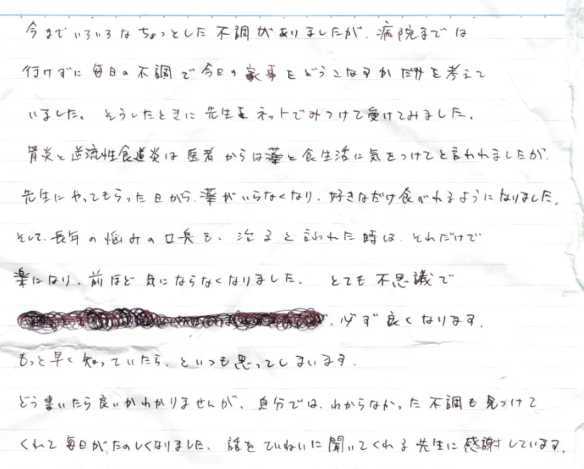 今までいろいろなちょっとした不調がありましたが、病院までは
行けずに毎日の不調で今日の家事をどうこなすかだけを考えて
いました。そうしたときに先生をネットでみつけて受けてみました。
胃炎と逆流性食道炎は医者からは薬と食生活に気をつけてと言われましたが、
先生にやってもらった日から、薬がいらなくなり、好きなだけ食べれるようになりました。
そして、長年の悩みの も、治ると言われた時は、それだけで
楽になり、前ほど気にならなくなりました。とても不思議で
、必ず良くなります。
もっと早く知っていたら、といつも思ってしまいます。
どう書いたら良いかわかりませんが、自分では、わからなかった不調も見つけて
くれて毎日がたのしくなりました。話をていねいに聞いてくれる先生に感謝しています。